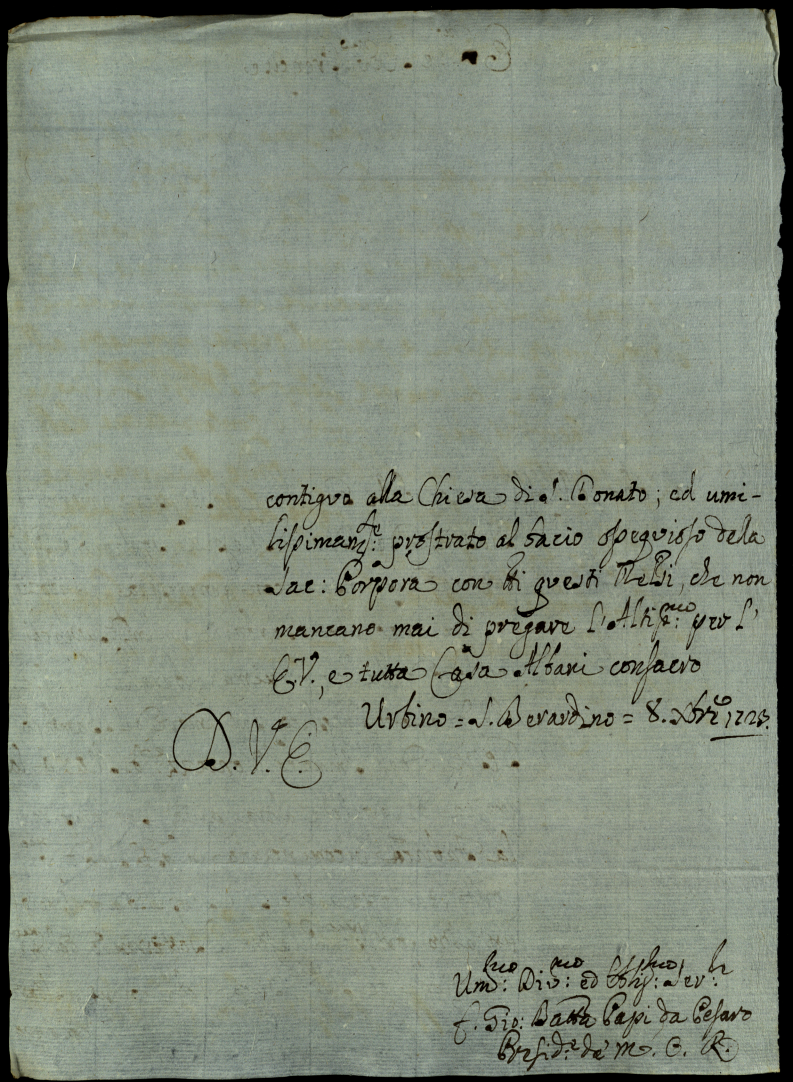 contigua alla Chiesa di S. Donato; ed umi-
lissimam.te: prostrato al bacio ossequioso della
Sac: Porpora con tti questi Relsi, che non
mancano mai di pregare l'Altiss.mo: per l'
E.V., e tutta Casa Albani consacro
Urbino = S. Berardino = 8. Xbre 1723.
D. V.a E.
Um.mo: Div.mo: ed Obligs.mo: Ser.re:
f. Gio: Batta Papi da Pesaro
Presid.te de M. O. R.